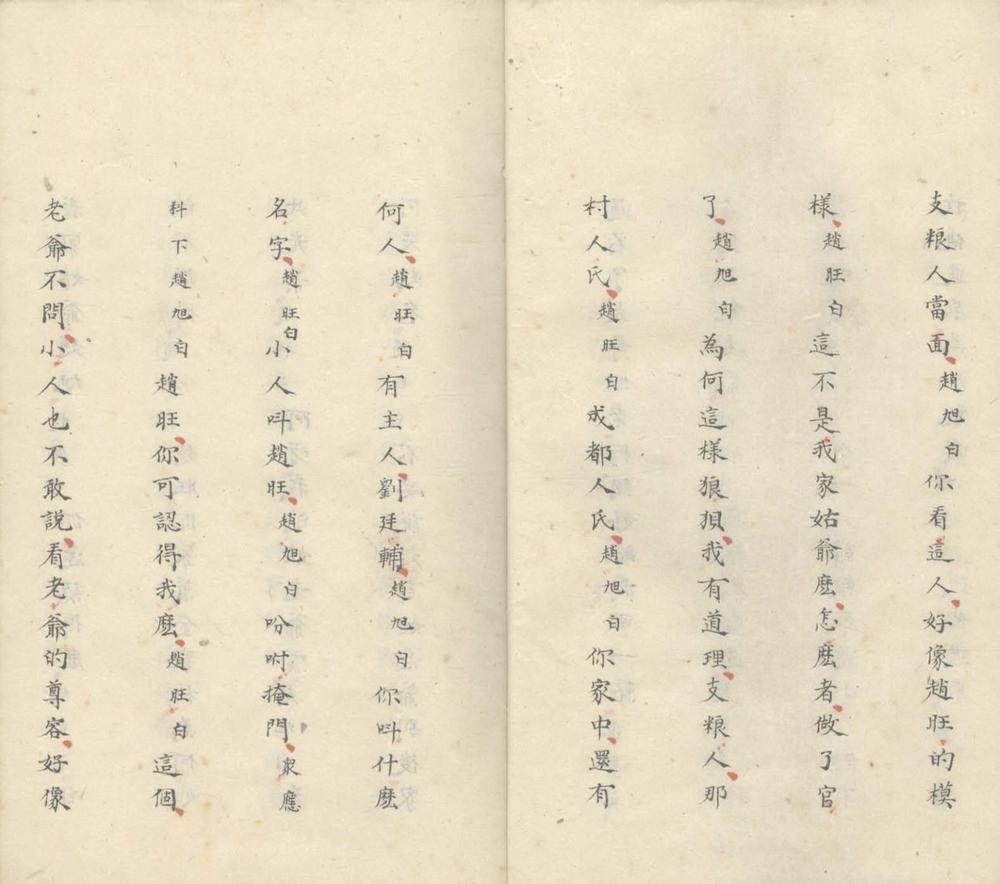 支粮人當面、趙旭白你看這人、好像趙旺的模
樣、趙旺白這不是我家姑爺庅、怎庅者、做了官
了、趙旭白為何這樣狼狽、我有道理、支粮人、那
村人氏、趙旺白成都人氏、趙旭白你家中還有
何人、趙旺白有主人、劉廷輔、趙旭白你呌什庅
名字、趙旺白小人呌趙旺、趙旭白吩咐掩門、衆應
科下趙旭白趙旺、你可認得我庅、趙旺白這個、
老爺不問、小人也不敢説、看老爺的尊容、好像